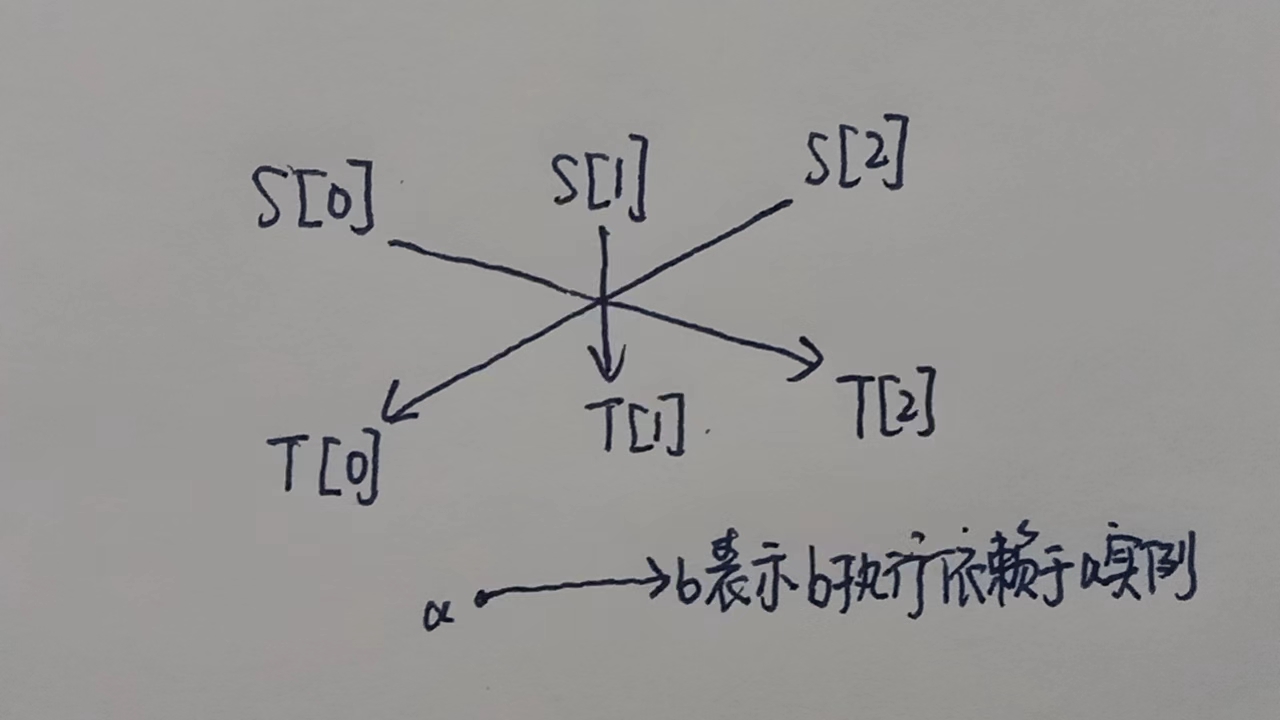 S[0] S[1] S[2]
T[0] T[1] T[2]
a → b表示b执行依赖于a实例